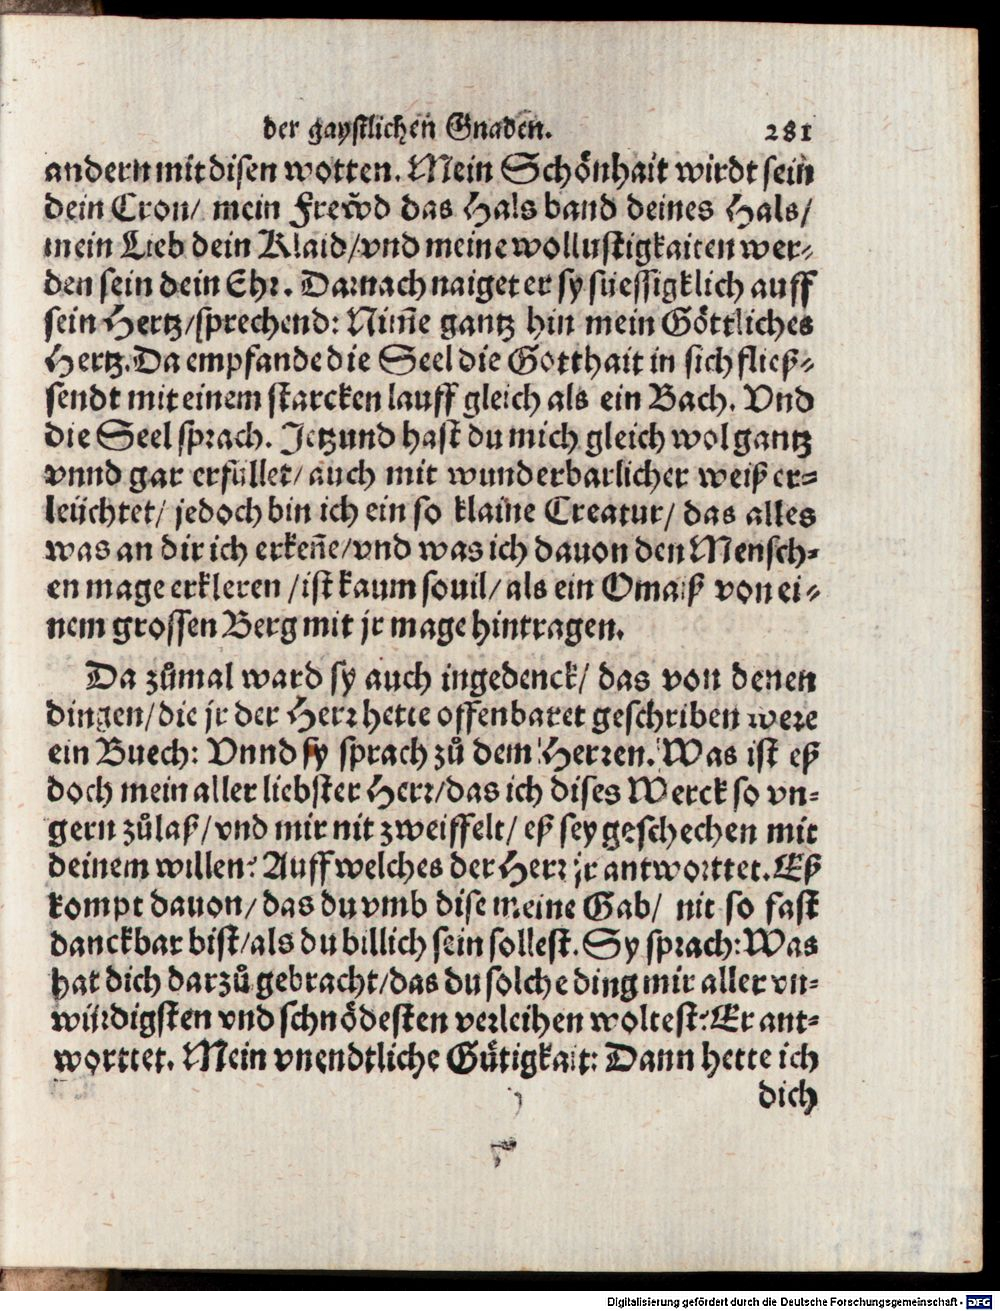 der gaystlichen Gnaden. 281
andern mit disen wotten. Mein Schönhait wirdt sein
dein Cron/ mein Frew̃d das Halsband deines Hals/
mein Lieb dein Klaid/vnd meine wollustigkaiten wer-
den sein dein Ehr. Darnach naiget er sy süessigklich auff
sein Hertz/sprechend: Nim̃e gantz hin mein Göttliches
Hertz. Da empfande die Seel die Gotthait in sich fließ-
sendt mit einem starcken lauff gleich als ein Bach. Vnd
die Seel sprach. Jetzund hast du mich gleich wol gantz
vnnd gar erfüllet/ auch mit wunderbarlicher weiß er-
leüchtet/ jedoch bin ich ein so klaine Creatur/ das alles
was an dir ich erkeñe/vnd was ich dauon den Mensch-
en mage erkleren /ist kaum souil/ als ein Omaiß von ei-
nem grossen Berg mit jr mage hintragen.
Da zůmal ward sy auch ingedenck/ das von denen
dingen/die jr der Herr hette offenbaret geschriben were
ein Buech: Vnnd sy sprach zů dem Herren. Was ist eß
doch mein aller liebster Herr/das ich dises Werck so vn-
gern zůlaß/vnd mir nit zweiffelt/ eß sey geschechen mit
deinem willen? Auff welches der Herr jr antworttet. Eß
kompt dauon/das du vmb dise meine Gab/ nit so fast
danckbar bist/als du billich sein sollest. Sy sprach: Was
hat dich darzů gebracht/das du solche ding mir aller vn-
würdigsten vnd schnödesten verleihen woltest? Er ant-
worttet. Mein vnendtliche Gütigkait: Dann hette ich
dich
Digitalisierung gefördert durch die Deutsche Forschungsgemeinschaft - DFG